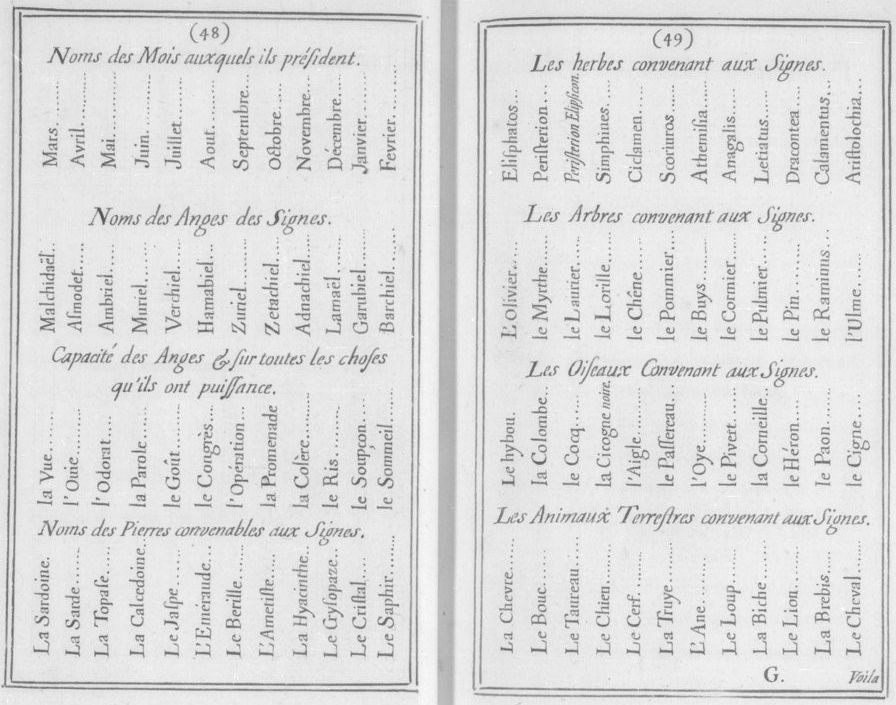 (48)
Noms des Mois auxquels ils préſident.
Mars......
Avril......
Mai......
Juin......
Juillet......
Aout......
Septembre...
Octobre....
Novembre...
Décembre...
Janvier.....
Fevrier......
Noms des Anges des Signes.
Malchidaël..
Aſmodet.....
Ambriel.....
Muriel......
Verchiel.....
Hamabiel...
Zuriel.....
Zetachiel....
Adnachiel....
Lamaël.....
Garubiel.....
Barchiel.....
Capacité des Anges & ſur toutes les choſes
qu'ils ont puiſſance.
la Vue......
l'Ouie......
l'Odorat....
la Parole.....
le Goût......
le Congrès...
l'Opération...
la Promenade
la Colère.....
le Ris......
le Soupçon....
le Sommeil.....
Noms des Pierres convenables aux Signes.
La Sardoine.
La Sarde......
La Topaſe....
La Calcedoine.
Le Jaſpe.....
L'Emeraude...
Le Berille.....
L'Ametiſte....
La Hyacinthe.
Le Gryſopaze..
Le Criſtal.....
Le Saphir......
(49)
Les herbes convenant aux Signes.
Eliſphatos...
Periſterion....
Periſterion Elipſicom.
Simphines....
Ciclamen.....
Scorinros....
Athemiſia....
Anagalis.....
Letiatus.....
Dracontea....
Calamentus...
Ariſtolochia...
Les Arbres convenant aux Signes.
L'Olivier....
le Myrthe.....
le Laurier....
le Lorille....
le Chêne.....
le Pommier...
le Buys......
le Cormier....
le Pulmier....
le Pin......
le Ramions...
l'Ulme.....
Les Oiſeaux Convenant aux Signes.
Le hybou.
la Colombe..
le Cocq.....
la Cicogne noire.
l'Aigle......
le Paſſereau...
l'Oye......
le Pivert.....
la Corneille..
le Héron.....
le Paon.....
le Cigne....
Les Animaux Terreſtres convenant aux Signes.
La Chevre.....
Le Bouc.......
Le Taureau....
Le Chien......
Le Cerf......
La Truye.....
L'Ane.......
Le Loup.....
La Biche.....
Le Lion.....
La Brebis....
Le Cheval.....
G.
Voila